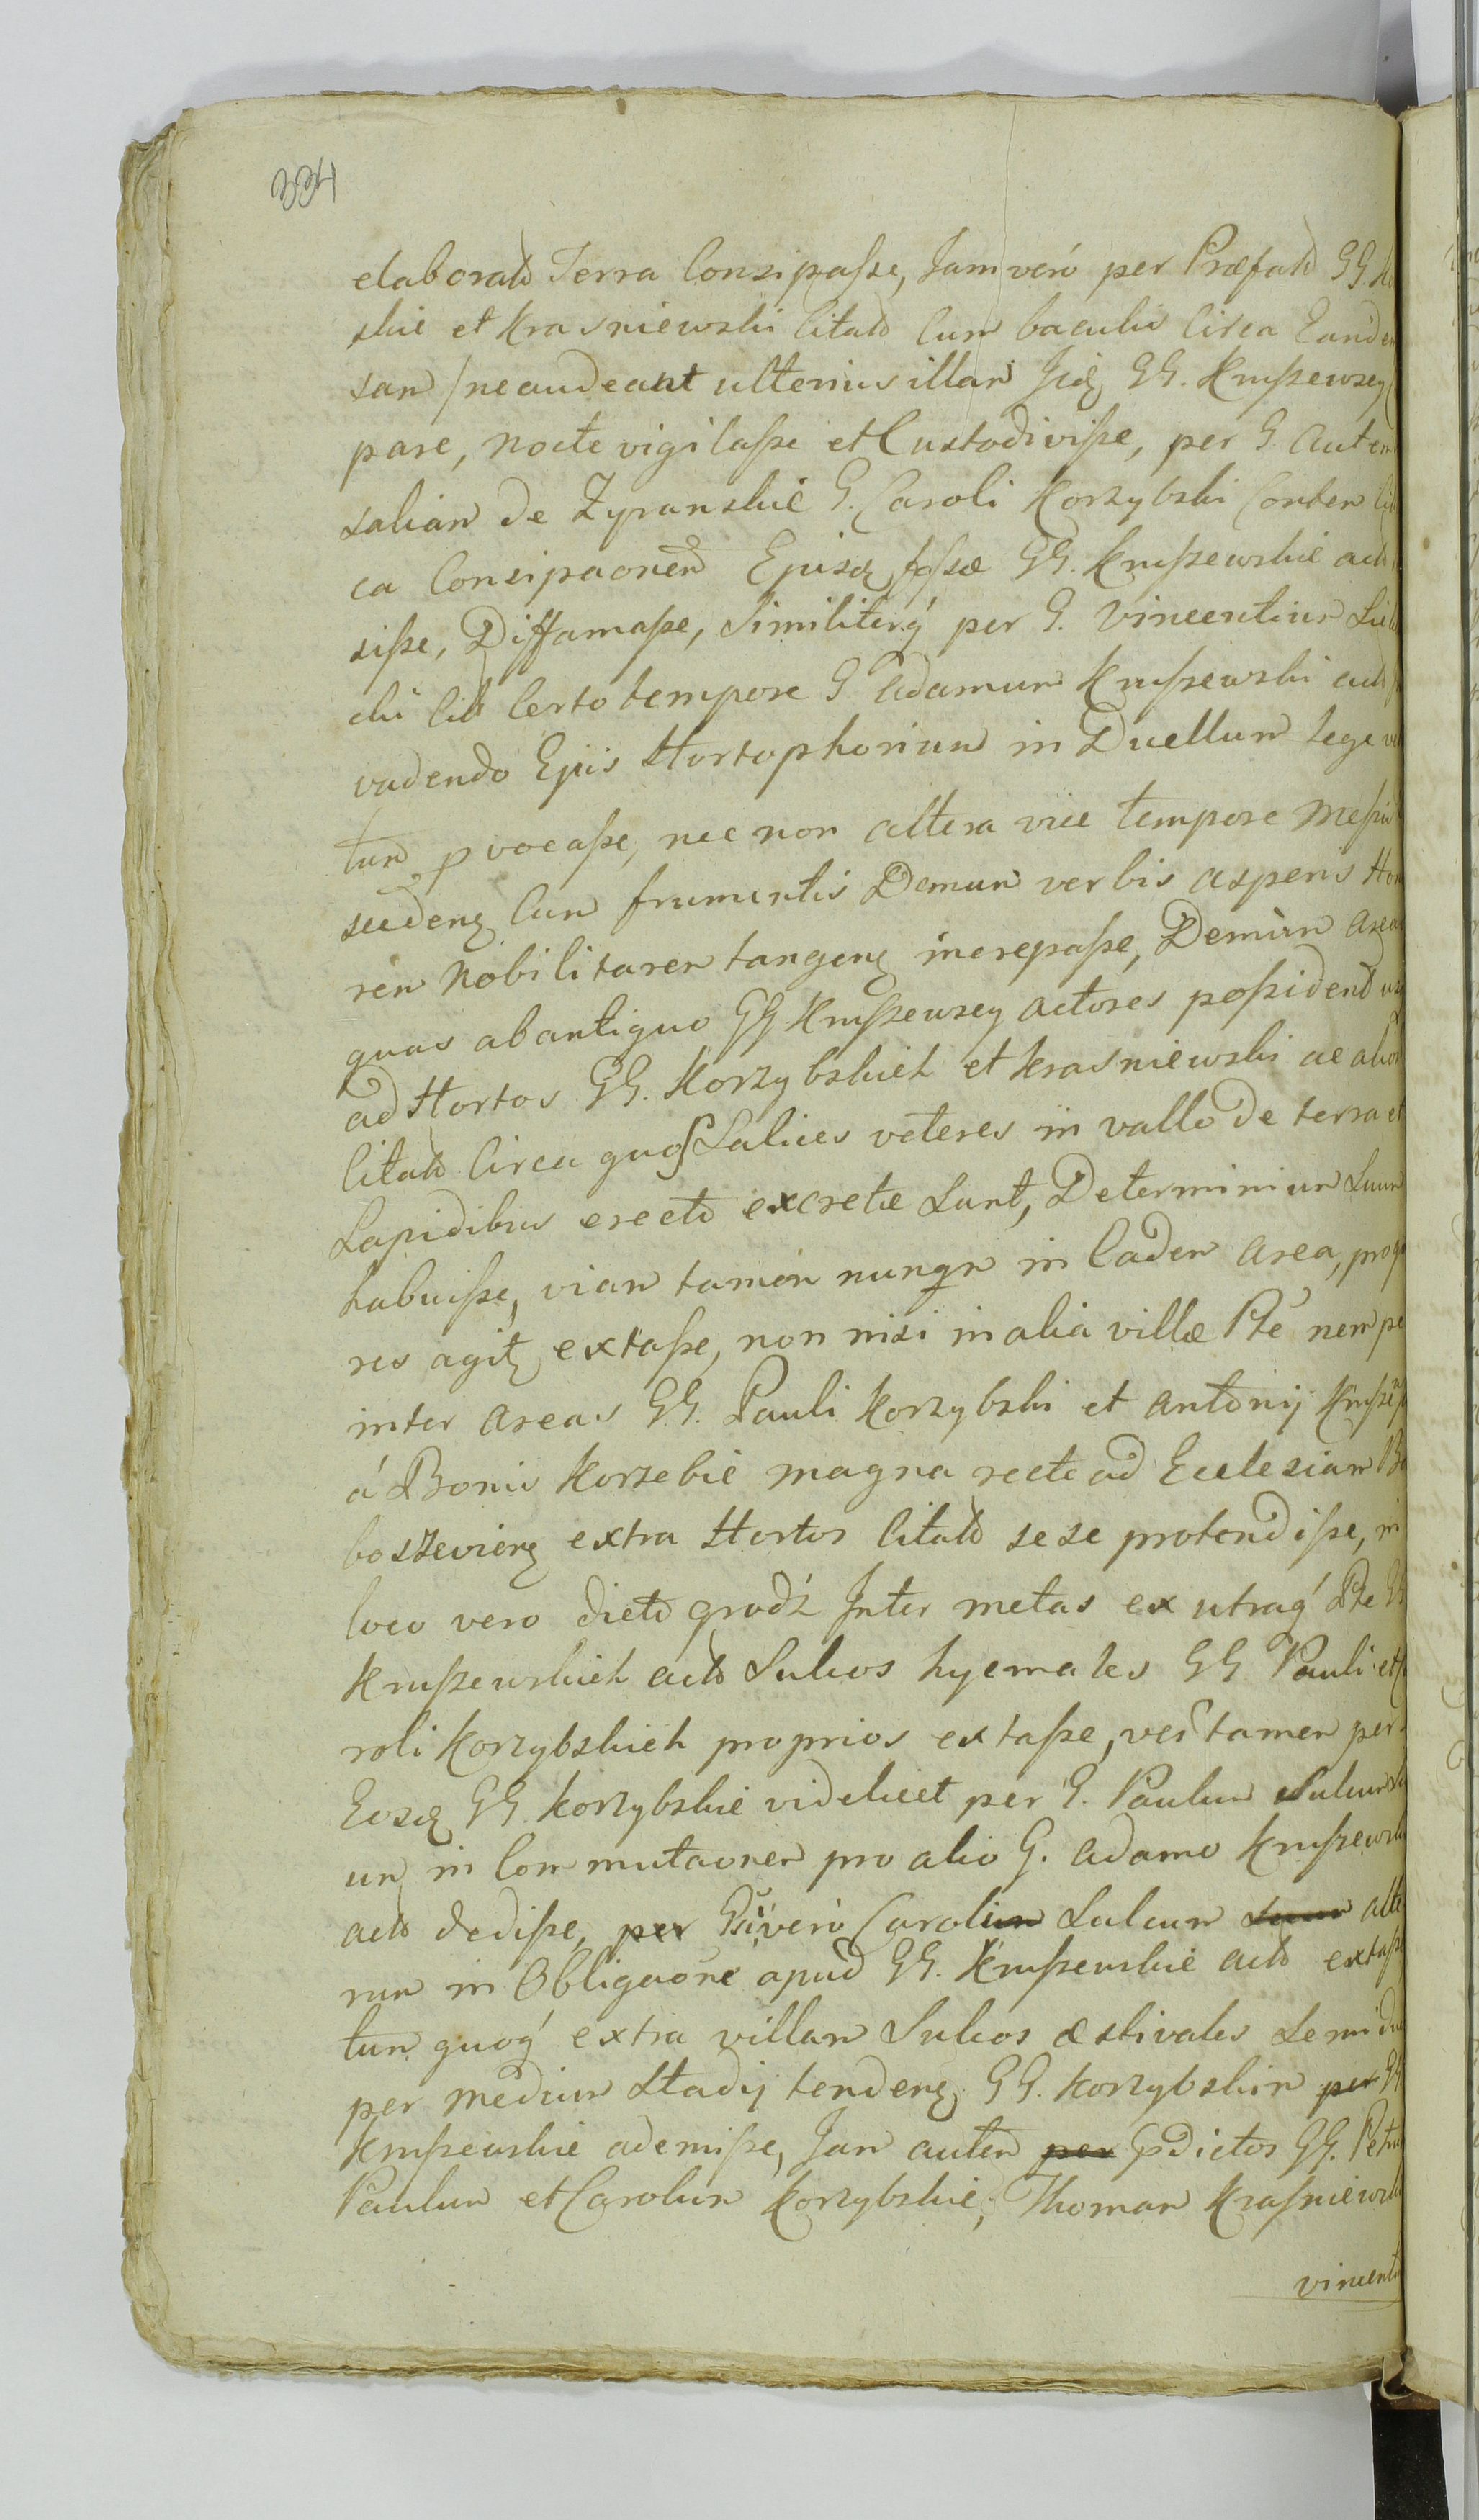 334
elaborato Terra Consipasse, Jam veró per Præfato GG.
skie et Krasniewski Citato Cum baculis Circa Eand
sam /ne audeant ulterius illam Jid GG. Krusszewscy
pare, nocte vigilasse et Custodivisse, per G. Autem
saliam de Zyranskie G. Caroli Korzybski Conten
ca Consipaonem Ejusd fossæ GG. Krusszewskie acto
sisse, Diffamasse, Similiterq́ per G. Vincentium
chi Cit Certo tempore G Adamum Krusszewski acto
vadendo Ejus Hortophorium in Duellum Lege
tum pvocasse, nec non altera vice tempore Messis
seedenz Cum frumentis Demum verbis asperis Hon
rem Nobilitarem tangenz increpasse, Demum Areas
quas ab antiquo GG Krusszewscy actores possidend
ad Hortos GG. Korzybskich et Krasniewski ac
Citato Circa quos Salices veteres in vallo de terra et
Lapidibus erecto excretæ sunt, Determinium Suum
habuisse, viam tamen nunqm in Eadem Area, pro
res agitz extasse, non nisi in alia villæ Pte nempe
inter Areas GG. Pauli Korzybski et Antonij
á Bonis Korzebie magna recte ad Ecclesiam
boszeviens extra Hortos Citato sese protendisse, in
loco vero dicto grodź Jnter metas ex utraq́ Pte
Krusszewskich acto Sulcos hyemales GG. Pauli et
roli Korzybskich proprios extasse, ver tamen per
Eosd GG. Korzybskie videlicet per G. Paulum Sulcum
um in Commutaonem pro alio G. Adamo Krusszewski
acto dedisse, per veró Carolum Sulcum suum alte
rum in Obligaone apud GG. Krusszewskie acto extasse
tum quoq́ extra villam Sulcos æstivales
per medium Stadij tendenz GG. Korzybskim per
Krusszewskie ademisse, Jam autem per pdictos GG. Petrum
Paulum et Carolum Korzybskie, Thomam Krasniewski
vincenti